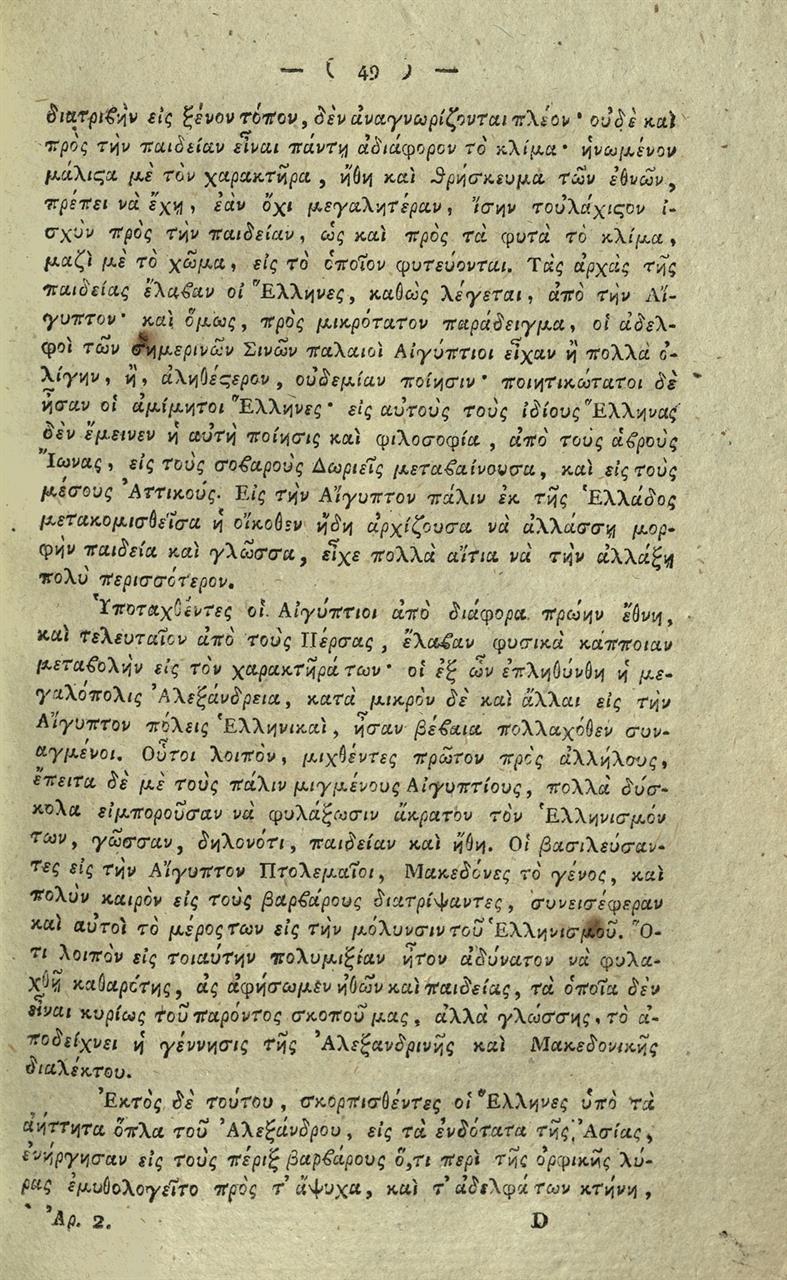 — ( 49 ) —
διατριβὴν εἰς ξένον τόπον, δὲν ἀναγνωρίζονται πλέον· οὐδὲ καὶ
πρὸς τὴν παιδείαν εἶναι πάντῃ ἀδιάφορον τὸ κλίμα· ἡνωμένον
μάλιϛα μὲ τὸν χαρακτῆρα, ἤθη καὶ θρήσκευμα τῶν ἐθνῶν,
πρέπει νὰ ἔχῃ, ἐὰν ὄχι μεγαλητέραν, ἴσην τοὐλάχιϛον ἰ-
σχὺν πρὸς τὴν παιδείαν, ὡς καὶ πρὸς τὰ φυτὰ τὸ κλίμα,
μαζὶ μὲ τὸ χῶμα, εἰς τὸ ὁποῖον φυτεύονται. Τὰς ἀρχὰς τῆς
παιδείας ἔλαβαν οἱ Ἕλληνες, καθὼς λέγεται, ἀπὸ τὴν Αἴ-
γυπτον· καὶ ὅμως, πρὸς μικρότατον παράδειγμα, οἱ ἀδελ-
φοὶ τῶν σημερινῶν Σινῶν παλαιοὶ Αἰγύπτιοι εἶχαν ἢ πολλὰ ὀ-
λίγην, ἢ, ἀληθέϛερον, οὐδεμίαν ποίησιν· ποιητικώτατοι δὲ
ἦσαν οἱ ἀμίμητοι Ἕλληνες· εἰς αὐτοὺς τοὺς ἰδίους Ἕλληνας
δὲν ἔμεινεν ἡ αὐτὴ ποίησις καὶ φιλοσοφία, ἀπὸ τοὺς ἁβροὺς
Ἴωνας, εἰς τοὺς σοβαροὺς Δωριεῖς μεταβαίνουσα, καὶ εἰς τοὺς
μέσους Ἀττικούς. Εἰς τὴν Αἴγυπτον πάλιν ἐκ τῆς Ἑλλάδος
μετακομισθεῖσα ἡ οἴκοθεν ἤδη ἀρχίζουσα νὰ ἀλλάσσῃ μορ-
φὴν παιδεία καὶ γλῶσσα, εἶχε πολλὰ αἴτια νὰ τὴν ἀλλάξῃ
πολὺ περισσότερον.
Ὑποταχθέντες οἱ Αἰγύπτιοι ἀπὸ διάφορα πρώην ἔθνη,
καὶ τελευταῖον ἀπὸ τοὺς Πέρσας, ἔλαβαν φυσικὰ κάπποιαν
μεταβολὴν εἰς τὸν χαρακτῆρά των· οἱ ἐξ ὧν ἐπληθύνθη ἡ με-
γαλόπολις Ἀλεξάνδρεια, κατὰ μικρὸν δὲ καὶ ἄλλαι εἰς τὴν
Αἴγυπτον πόλεις Ἑλληνικαὶ, ἦσαν βέβαια πολλαχόθεν συν-
αγμένοι. Οὗτοι λοιπὸν, μιχθέντες πρῶτον πρὸς ἀλλήλους,
ἔπειτα δὲ μὲ τοὺς πάλιν μιγμένους Αἰγυπτίους, πολλὰ δύσ-
κολα εἰμποροῦσαν νὰ φυλάξωσιν ἄκρατον τὸν Ἑλληνισμόν
των, γῶσσαν, δηλονότι, παιδείαν καὶ ἤθη. Οἱ βασιλεύσαν-
τες εἰς τὴν Αἴγυπτον Πτολεμαῖοι, Μακεδόνες τὸ γένος, καὶ
πολὺν καιρὸν εἰς τοὺς βαρβάρους διατρίψαντες, συνεισέφεραν
καὶ αὐτοὶ τὸ μέρος των εἰς τὴν μόλυνσιν τοῦ Ἑλληνισμοῦ. Ὅ-
τι λοιπὸν εἰς τοιαύτην πολυμιξίαν ἦτον ἀδύνατον νὰ φυλα-
χθῇ καθαρότης, ἂς ἀφήσωμεν ἠθῶν καὶ παιδείας, τὰ ὁποῖα δὲν
εἶναι κυρίως τοῦ παρόντος σκοποῦ μας, ἀλλὰ γλώσσης, τὸ ἀ-
ποδείχνει ἡ γέννησις τῆς Ἀλεξανδρινῆς καὶ Μακεδονικῆς
διαλέκτου.
Ἐκτὸς δὲ τούτου, σκορπισθέντες οἱ Ἕλληνες ὑπὸ τὰ
ἀήττητα ὅπλα τοῦ Ἀλεξάνδρου, εἰς τὰ ἐνδότατα τῆς Ἀσίας,
ἐνήργησαν εἰς τοὺς πέριξ βαρβάρους ὅ,τι περὶ τῆς ὀρφικῆς λύ-
ρας ἐμυθολογεῖτο πρὸς τ' ἄψυχα, καὶ τ' ἀδελφά των κτήνη,
Ἀρ. 2. D